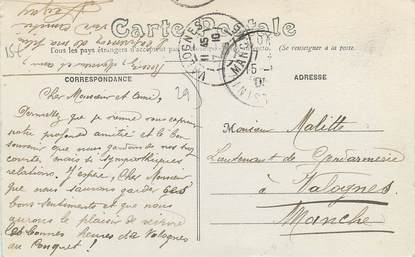 Carte Postale
Tous les pays étrangers n'acceptent pas la
(Se renseigner à la poste).
CORRESPONDANCE
ADRESSE
29
VALOGNES
Cher Monsieur et ami,
Permettez que je vous exprime
notre profonde amitié et le bon
souvenir que nous gardons de nos trop
courtes, mais si sympathiques
relations. J'espère, Cher Monsieur
que nous saurons garder ces
bons sentiments et que nous
aurons le plaisir de revivre
les bonnes heures de Valognes
au Ponquet !
Monsieur Malitte
Lieutenant de Gendarmerie
à Valognes
Manche